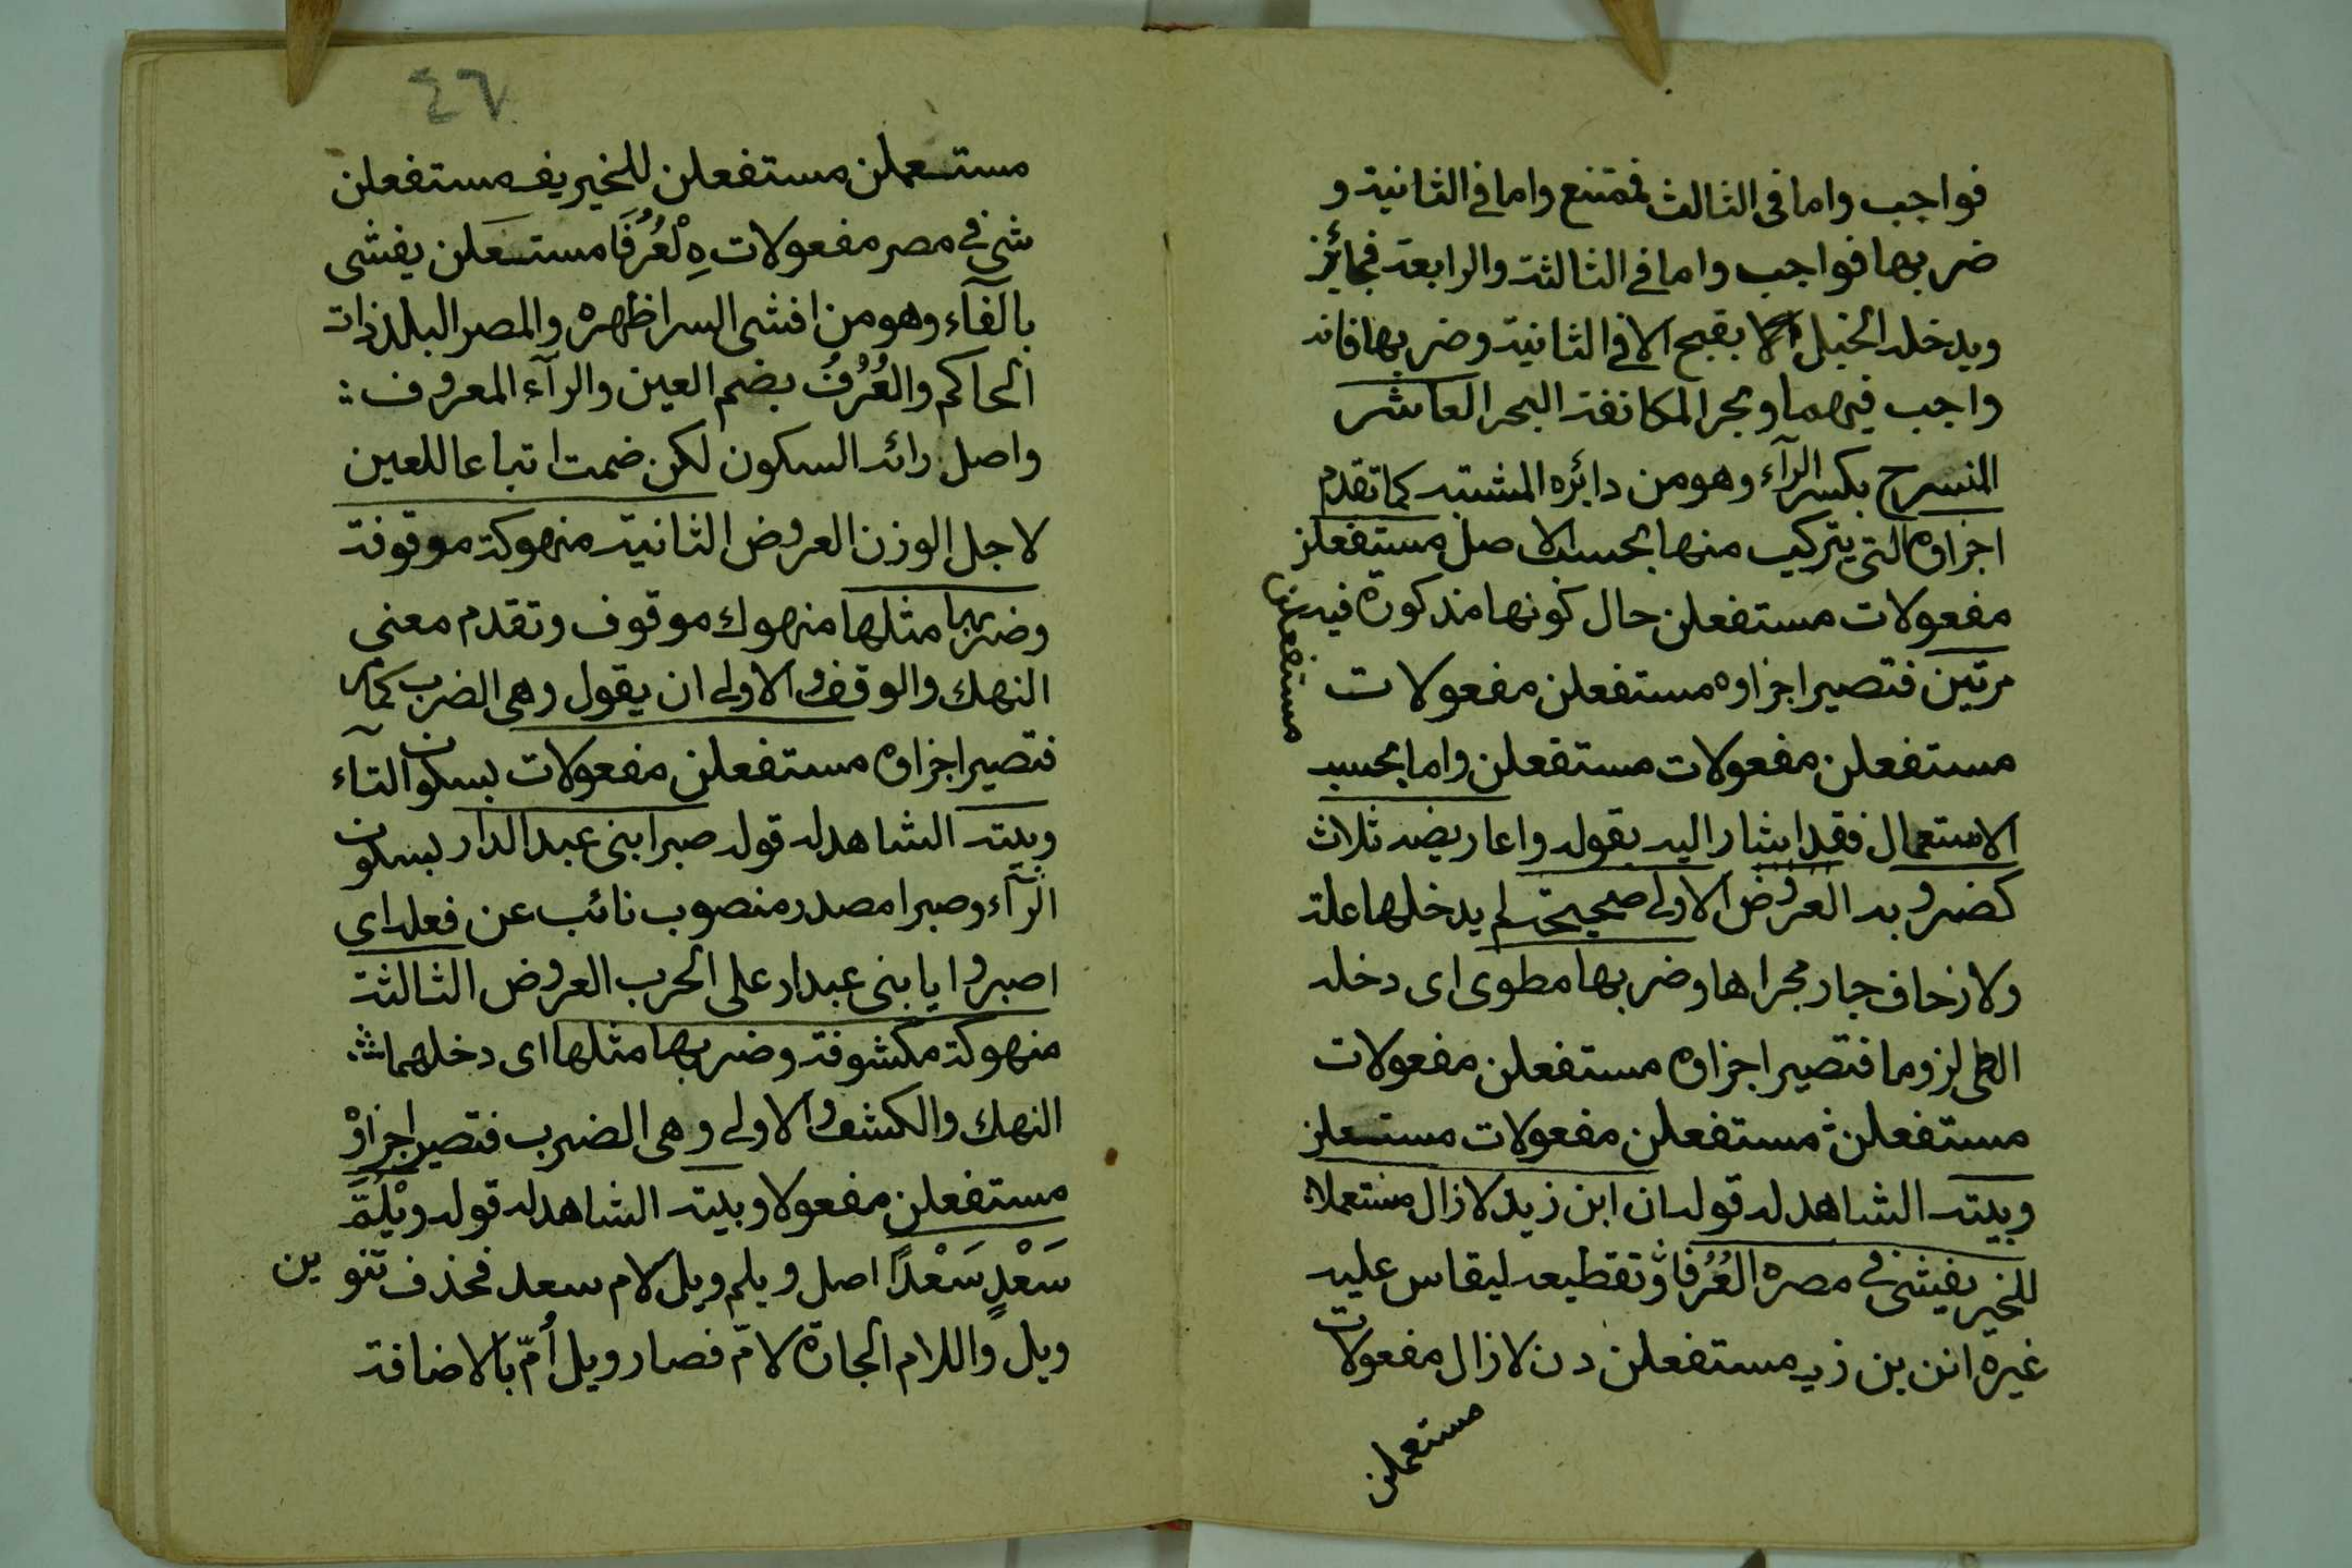 فواجب واما فى الثالث فممتنع واما فى الثانية و
ضربها فواجب واما فى الثالثة والرابعة فجائز
ويدخله الخبل بقبح الا فى الثانية وضربها فانه
واجب فيهما وبحر المكانفة البحر العاشر
المنسرح بكسر الرآء وهو من دايره المشتبه كما تقدم
اجزاوه التى يتركب منها بحسب الاصل مستفعلن
مفعولات مستفعلن حال كونها مذكورة فيه
مرتين فتصير اجزاوه مستفعلن مفعولات
مستفعلن
مستفعلن مفعولات مستفعلن واما بحسب
الاستعمال فقد اشار اليه بقوله واعاريضه ثلاث
كضروبه العروض الاولى صحيحة لم يدخلها علة
ولا زحاف جار مجراها وضربها مطوى اى دخله
الطى لزوما فتصير اجزاوه مستفعلن مفعولات
مستفعلن مستفعلن مفعولات مستعلن
وبيته الشاهد له قوله ان ابن زيد لا زال مستعملا
للخير يفشى فى مصره العُرُفا وتقطيعه ليقاس عليه
غيره انن بن زيد مستفعلن دن لا زال مفعولات
مستعملن
٤٦
مستعملن مستفعلن للخير يف مستفعلن
شى فى مصر مفعولات هِ لْعُرُفَا مستعلن يفشى
بالفآء وهو من افشى السر اظهره والمصر البلد ذات
الحاكم والعُرُفُ بضم العين والرآء المعروف
واصل رائه السكون لكن ضمت اتباعا للعين
لاجل الوزن العروض الثانية منهوكة موقوفة
وضربها مثلها منهوك موقوف وتقدم معنى
النهك والوقف والاولى ان يقول وهى الضرب كما مر
فتصير اجزاوه مستفعلن مفعولات بسكون التآء
وبيته الشاهد له قوله صبرا بنى عبد الدار بسكون
الرآء وصبرا مصدر منصوب نائب عن فعله اى
اصبروا يا بنى عبدار على الحرب العروض الثالثة
منهوكة مكشوفة وضربها مثلها اى دخلهما
النهك والكشف والاولى وهى الضرب فتصير اجزاوه
مستفعلن مفعولا وبيته الشاهد له قوله ويْلُمِّ
سَعْدٍ سَعْدًا اصل ويلم ويل لام سعد فحذف تنوين
ويل واللام الجارة لامّ فصار ويل أُمّ بالاضافة